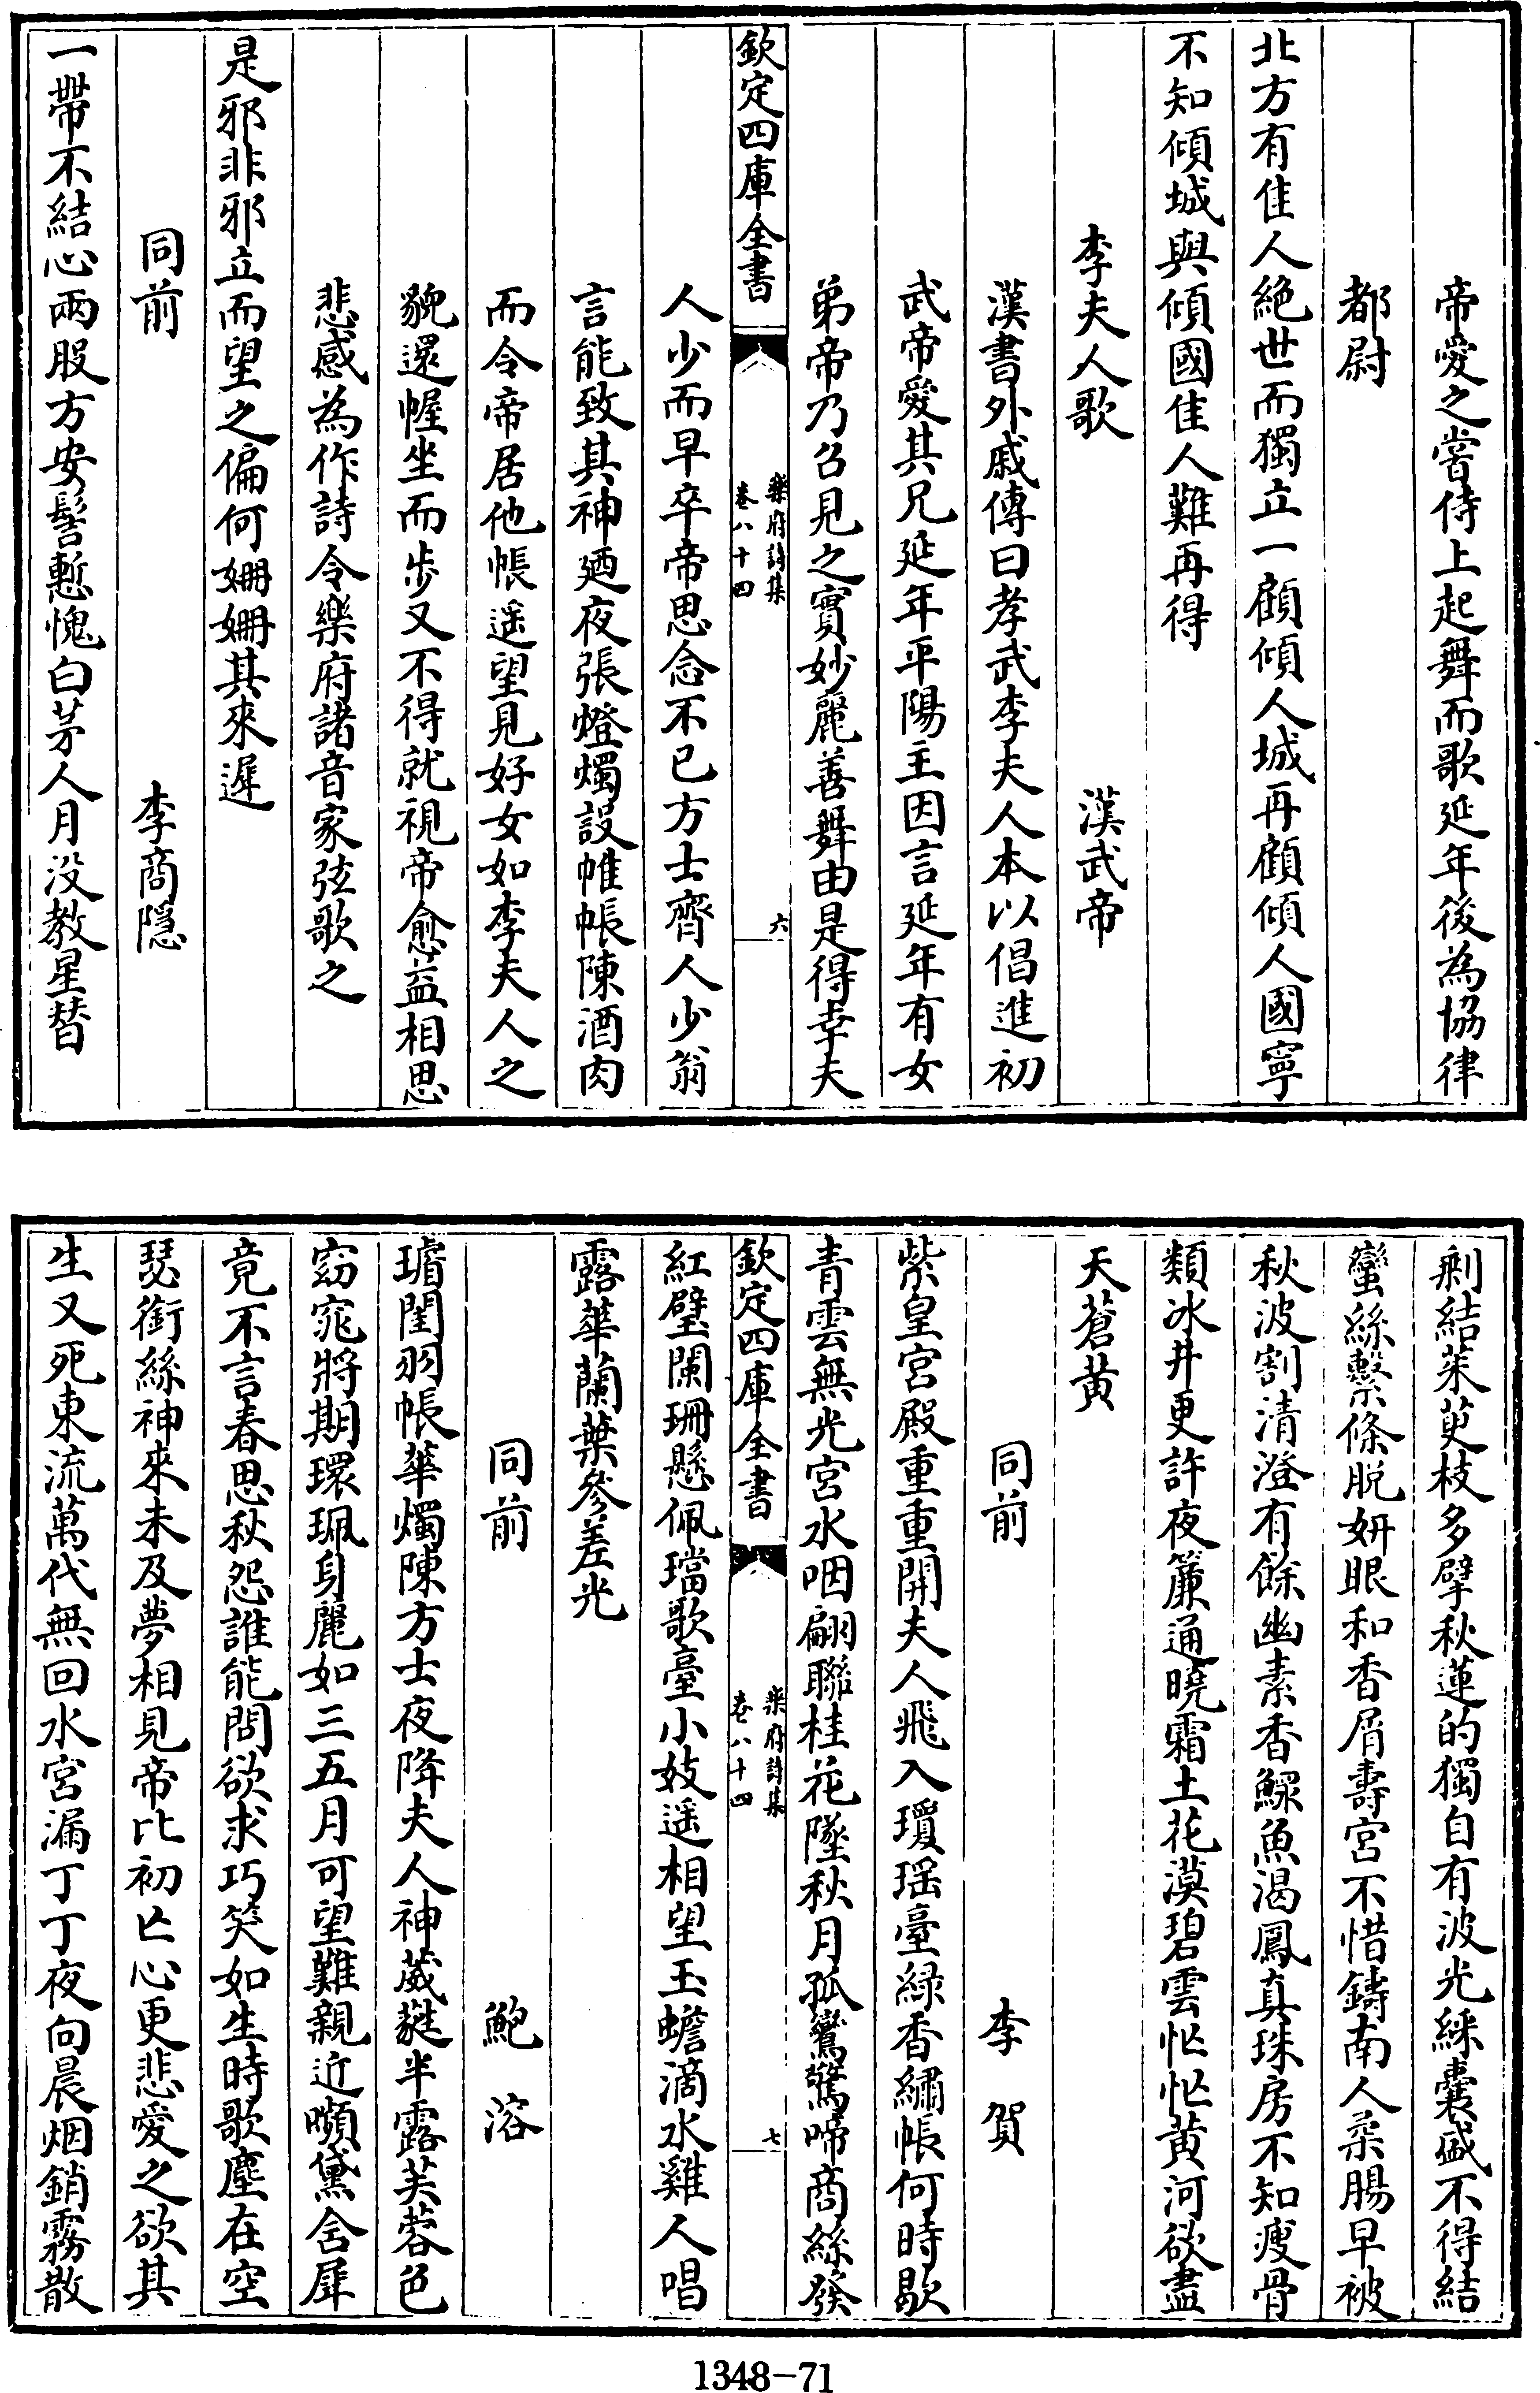 帝愛之嘗侍上起舞而歌延年後為協律
都尉
北方有佳人絶世而獨立一顧傾人城再顧傾人國寧
不知傾城與傾國佳人難再得
李夫人歌 漢武帝
漢書外戚傳曰孝武李夫人本以倡進初
武帝愛其兄延年平陽主因言延年有女
弟帝乃召見之實妙麗善舞由是得幸夫
欽定四庫全書
樂府詩集
卷八十四
六
人少而早卒帝思念不已方士齊人少翁
言能致其神廼夜張燈燭設帷帳陳酒肉
而令帝居他帳遥望見好女如李夫人之
貌還幄坐而步又不得就視帝愈益相思
悲感為作詩令樂府諸音家弦歌之
是邪非邪立而望之偏何姍姍其來遲
同前 李商隱
一帶不結心兩股方安髻慙愧白茅人月没教星替
剰結茱萸枝多擘秋蓮的獨自有波光綵囊盛不得結
蠻絲繫條脱妍眼和香屑壽宮不惜鑄南人柔腸早被
秋波割清澄有餘幽素香鰥魚渴鳳真珠房不知瘦骨
類冰井更許夜簾通曉霜土花漠碧雲忙忙黄河欲盡
天蒼黄
同前 李賀
紫皇宮殿重重開夫人飛入瓊瑶臺緑香繡帳何時歇
青雲無光宮水咽翩聯桂花墜秋月孤鸞驚啼商絲發
欽定四庫全書
樂府詩集
卷八十四
七
紅壁闌珊懸佩璫歌臺小妓遥相望玉蟾滴水雞人唱
露華蘭葉參差光
同前 鮑溶
璿閨羽帳華燭陳方士夜降夫人神葳蕤半露芙蓉色
窈窕將期環珮身麗如三五月可望難親近嚬黛含犀
竟不言春思秋怨誰能問欲求巧笑如生時歌塵在空
瑟銜絲神來未及夢相見帝比初亡心更悲愛之欲其
生又死東流萬代無回水宮漏丁丁夜向晨烟銷霧散
1348-71